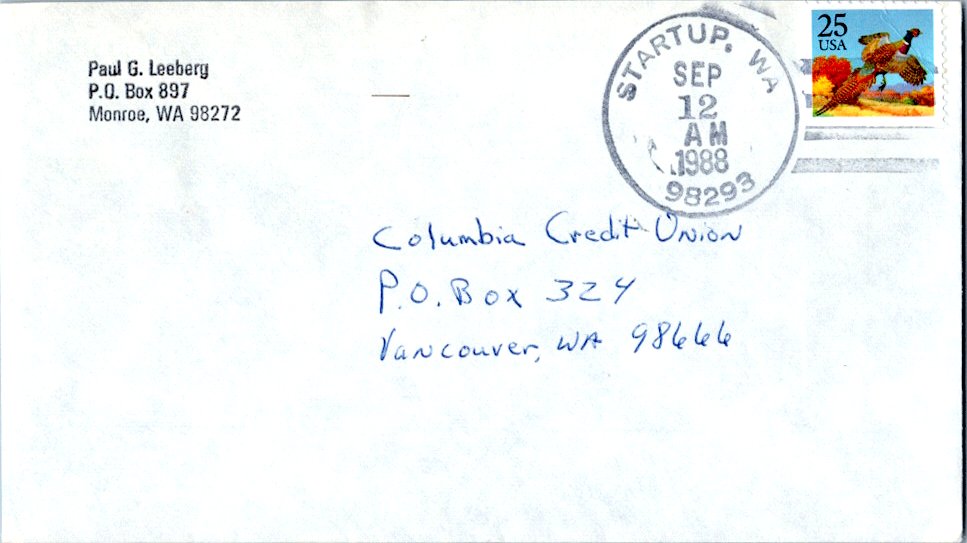 Paul G. Leeberg
P.O. Box 897
Monroe, WA 98272
STARTUP, WA
SEP
12
AM
1988
98293
25
USA
Columbia Credit Union
P.O. Box 324
Vancouver, WA 98666